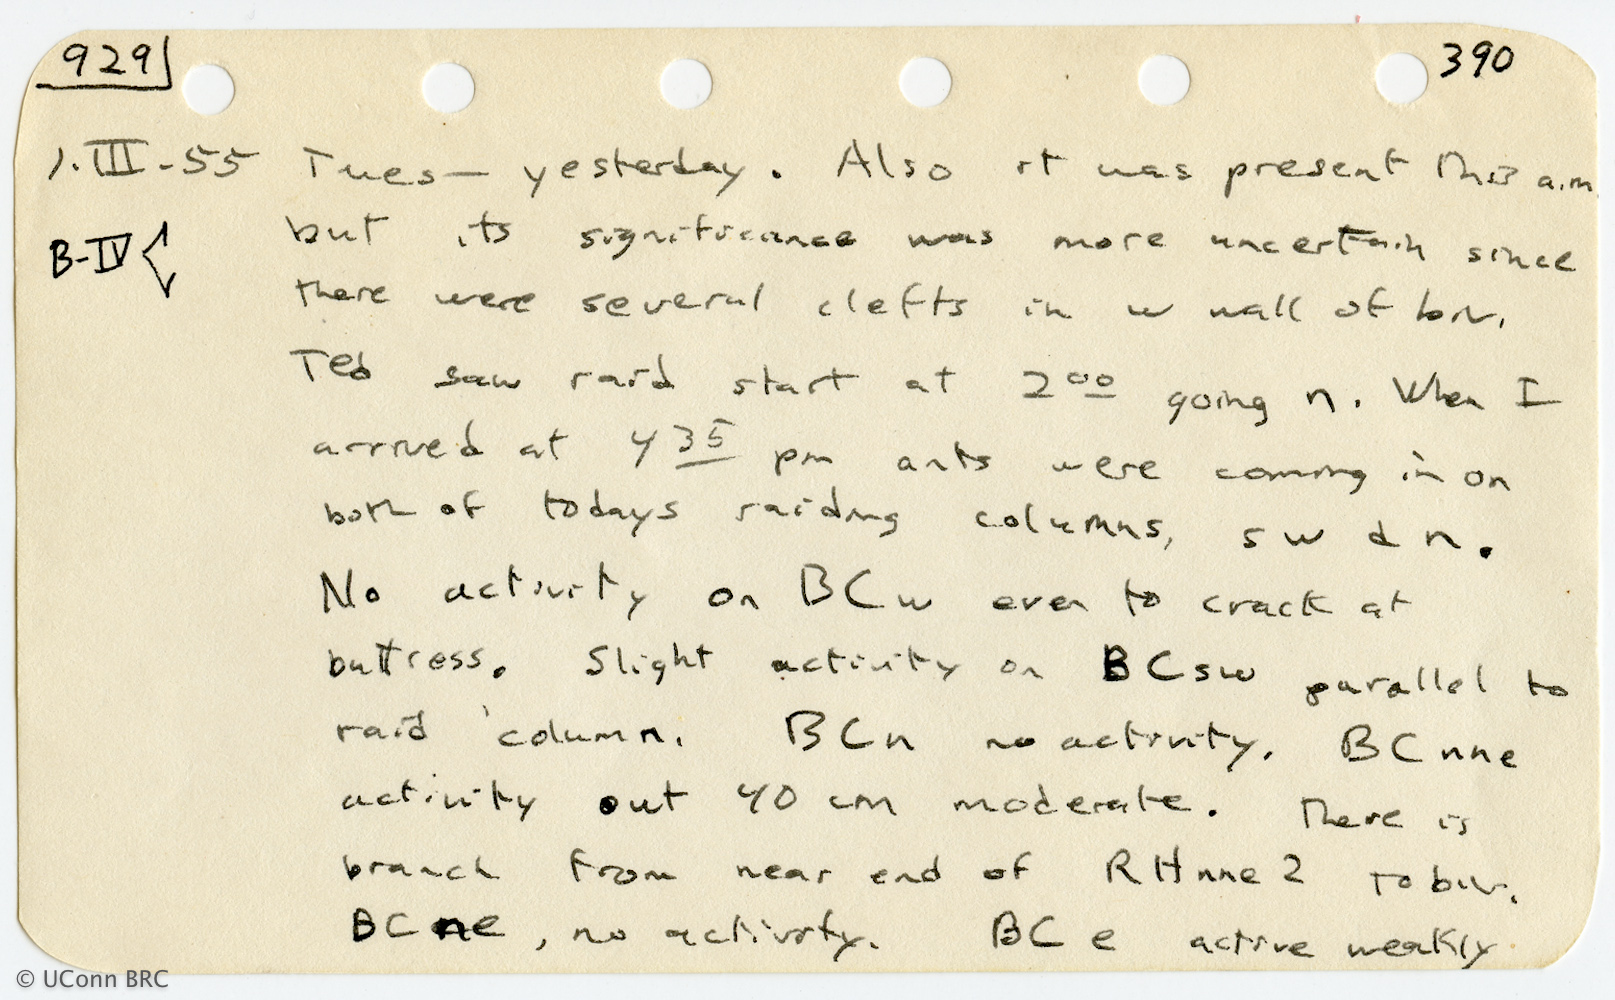 929 390
1.III-55 Tues— yesterday. Also it was present this a.m.
B-IV but its significance was more uncertain since
there were several clefts in w wall of biv.
Ted saw raid start at 2 00 going n. When I
arrived at 4 35 pm ants were coming in on
both of todays raiding columns, sw & n.
No activity on BCw even to crack at
buttress. Slight activity on BCsw parallel to
raid column. BCn no activity. BCnne
activity out 40 cm moderate. There is
branch from near end of RHnne2 to biv.
BCne, no activity. BCe active weakly
© UConn BRC